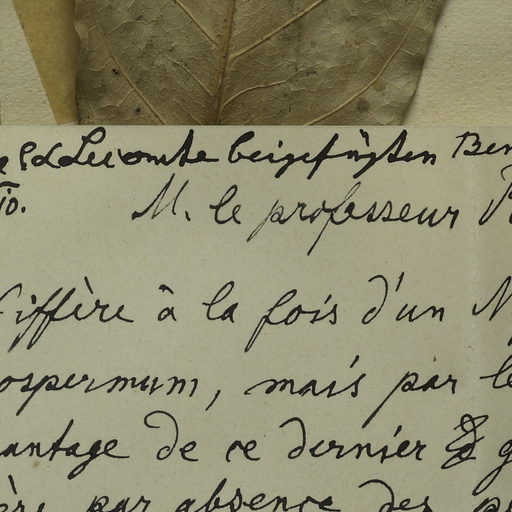 Lecomte beigefügten
10.
M. le professeur
diffère à la fois d'un
ospermum, mais par le
antage de ce dernier g
ère par absence des